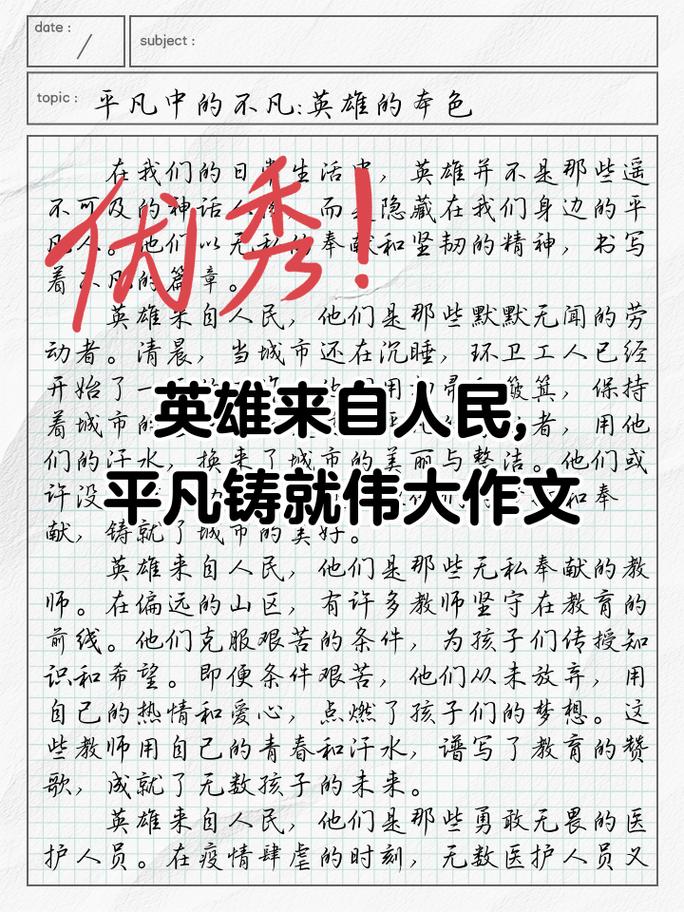 date :
/
subject :
topic : 平凡中的不凡:英雄的本色
在我们的日常生活中，英雄并不是那些遥
不可及的神话人物，而是隐藏在我们身边的平
凡人。他们以无私的奉献和坚韧的精神，书写
着不凡的篇章。
优秀!
英雄来自人民，他们是那些默默无闻的劳
动者。清晨，当城市还在沉睡，环卫工人已经
开始了一 用 帚和簸箕，保持
着城市的 者，用他
英雄来自人民,
们的汗水，换来了城市的美丽与整洁。他们或
许没 和奉
平凡铸就伟大作文
献，铸就了城市的美好。
英雄来自人民，他们是那些无私奉献的教
师。在偏远的山区，有许多教师坚守在教育的
前线。他们克服艰苦的条件，为孩子们传授知
识和希望。即便条件艰苦，他们从未放弃，用
自己的热情和爱心，点燃了孩子们的梦想。这
些教师用自己的青春和汗水，谱写了教育的赞
歌，成就了无数孩子的未来。
英雄来自人民，他们是那些勇敢无畏的医
护人员。在疫情肆虐的时刻，无数医护人员义